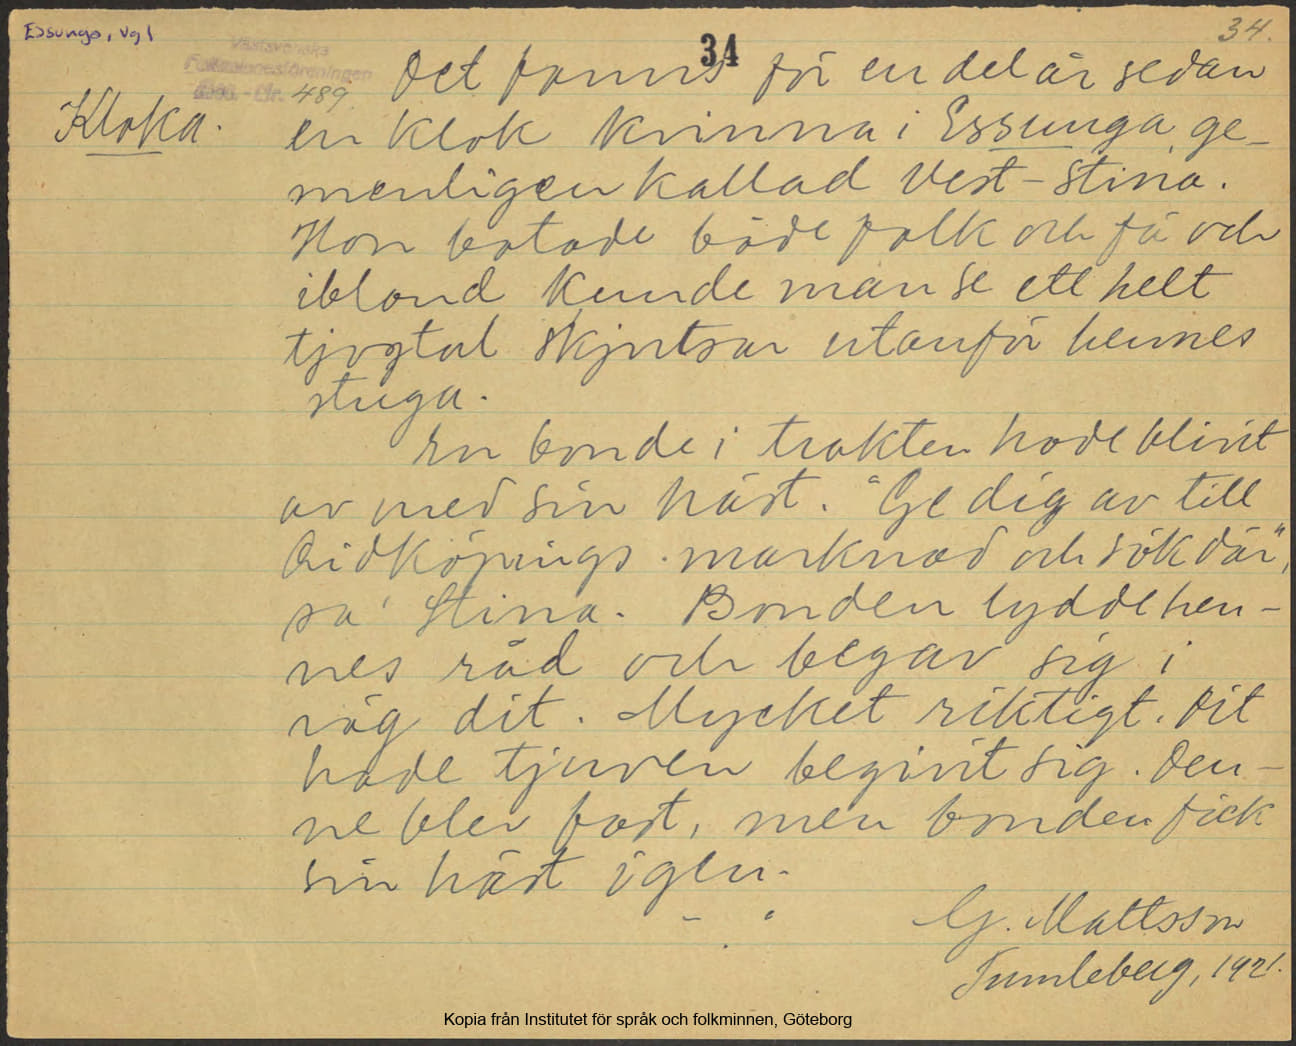 Essunga, Vgl
34.
Västsvenska
Folkminnesföreningen
Nr. 489
34
Kloka.
Det fanns för en del år sedan
en klok kvinna i Essunga, ge-
menligen kallad Vest-Stina.
Hon botade både folk och fä och
ibland kunde man se ett helt
tjogtal skjutsar utanför hennes
stuga.
En bonde i trakten hade blivit
av med sin häst. "Ge dig av till
Lidköpings marknad och sök där",
sa' Stina. Bonden lydde hen-
nes råd och begav sig i
väg dit. Mycket riktigt. Dit
hade tjuven begivit sig. Den-
ne blev fast, men bonden fick
sin häst igen.
G. Mattsson
Tumleberg, 1921.
Kopia från Institutet för språk och folkminnen, Göteborg